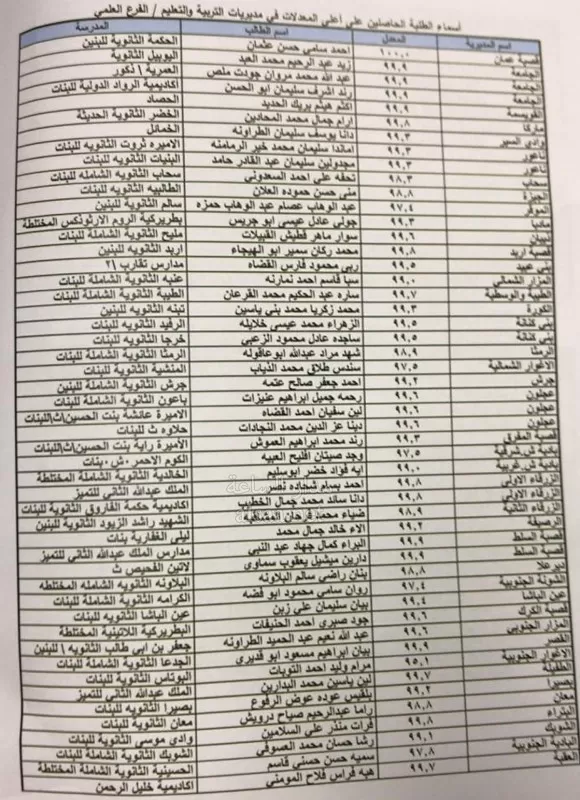 اسماء الطلبة الحاصلين على أعلى المعدلات في مديريات التربية والتعليم / الفرع العلمي
اسم المديرية المعدل اسم الطالب المدرسة
قصبة عمان ١٠٠.٠ احمد سامي حسن عثمان الحكمة الثانوية للبنين
الجامعة ٩٩.٩ زيد عبد الرحيم محمد العبد اليوبيل الثانوية
الجامعة ٩٩.٩ عبد الله محمد مروان جودت ملص العمرية \ ذكور
الجامعة ٩٩.٩ رند اشرف سليمان ابو الحسن أكاديمية الرواد الدولية للبنات
القويسمة ٩٩.٩ اكثم هيثم بريك الحديد الحصاد
ماركا ٩٩.٨ ارام جمال محمد المحادين الخضر الثانوية الحديثة
وادي السير ٩٩.٣ دانا يوسف سليمان الطراونه الخمائل
ناعور ٩٩.٣ اماندا سليمان محمد خير الرمامنه الاميره ثروت الثانويه للبنات
ناعور ٩٩.٣ مجدولين سليمان عبد القادر حامد البنيات الثانويه للبنات
سحاب ٩٨.٣ تحفه علي احمد السعدوني سحاب الثانويه الشامله للبنات
الجيزة ٩٨.٨ منى حسن حموده العلان الطالبيه الثانويه للبنات
الموقر ٩٧.٤ عبد الوهاب عصام عبد الوهاب حمزه سالم الثانوية للبنين
مادبا ٩٩.٣ جولي عادل عيسى ابو جريس بطريركية الروم الارثوذكس المختلطة
ذيبان ٩٩.٦ سوار ماهر قطيش القبيلات مليح الثانوية الشاملة للبنات
قصبة اربد ٩٩.٨ محمد ركان سمير ابو الهيجاء اربد الثانويه للبنين
بني عبيد ٩٩.٥ ربى محمود فارس القضاه مدارس تقارب \٢
المزار الشمالي ٩٩.٠ سبا قاسم احمد نمارنه عنبه الثانوية الشاملة للبنات
الطيبة والوسطية ٩٩.٧ ساره عبد الحكيم محمد القرعان الطيبة الثانوية الشاملة للبنات
الكورة ٩٩.٣ محمد زكريا محمد بني ياسين تبنه الثانويه للبنين
بني كنانة ٩٩.٥ الزهراء محمد عيسى خلايله الرفيد الثانويه للبنات
بني كنانة ٩٩.٥ ساجده عادل محمود الزعبي خرجا الثانويه للبنات
الرمثا ٩٨.٩ شهد مراد عبدالله ابوعاقوله الرمثا الثانوية الشاملة للبنات
الاغوار الشمالية ٩٧.٥ سندس طلاق محمد الذياب المنشية الثانوية للبنات
جرش ٩٩.٢ احمد جعفر صالح عتمه جرش الثانوية الشاملة للبنين
عجلون ٩٩.٦ رحمه جميل ابراهيم عنيزات باعون الثانوية للبنات
عجلون ٩٩.٦ لين سفيان احمد القضاه الاميرة عائشة بنت الحسين\ث\للبنات
عجلون ٩٩.٦ دينا عز الدين محمد النجادات حلاوه ث للبنات
قصبة المفرق ٩٩.٣ رند محمد ابراهيم العموش الاميرة راية بنت الحسين\ث\للبنات
بادية ش.شرقية ٩٧.٥ وجد صيتان افليح العيبه الكوم الاحمر٠ش٠بنات
بادية ش.غربية ٩٩.٠ ايه فؤاد خضر ابوسليم الخالدية الثانوية الشاملة المختلطة
الزرقاء الاولى ٩٩.٨ احمد بسام شحاده نصر الملك عبدالله الثاني للتميز
الزرقاء الاولى ٩٩.٨ دانا سائد محمد جمال الخطيب اكاديمية حكمة الفاروق الثانوية للبنات
الزرقاء الثانية ٩٨.٩ ضياء محمد فرحان المشاقبه الشهيد راشد الزيود الثانوية للبنين
الرصيفة ٩٩.٢ الاء خالد جمال محمد ليلى الغفارية بنات
قصبة السلط ٩٩.٩ البراء كمال جهاد عبد النبي مدارس الملك عبدالله الثاني للتميز
قصبة السلط ٩٩.٩ دارين ميشيل يعقوب سماوى لاتين الفحيص ث
ديرعلا ٩٨.٨ بنان راضي سالم البلاونه البلاونه الثانويه الشامله المختلطه
الشونة الجنوبية ٩٧.٤ روان سامي محمود ابو فضه الكرامه الثانويه الشاملة للبنات
عين الباشا ٩٩.٤ بيان سليمان علي زين عين الباشا الثانويه للبنات
قصبة الكرك ٩٩.٦ جود صبري احمد الحنيفات البطريركية اللاتينية المختلطة
المزار الجنوبي ٩٩.٦ عبد الله نعيم عبد الحميد الطراونه جعفر بن ابي طالب الثانويه \ للبنين
القصر ٩٩.٩ بيان ابراهيم مسعود ابو قديري الجدعا الثانوية الشاملة للبنات
الاغوار الجنوبية ٩٥.١ مرام وليد احمد التوبات البوتاس الثانوية للبنات
الطفيلة ٩٩.٧ لين ياسين محمد البدارين الملك عبدالله الثاني للتميز
بصيرا ٩٩.٢ بلقيس عوده عوض الرفوع بصيرا الثانويه للبنات
معان ٩٨.٨ راما عبدالرحيم صباح درويش معان الثانوية للبنات
البتراء ٩٩.٨ فرات منذر علي السلامين وادي موسى الثانوية للبنات
الشوبك ٩٩.١ رشا حسان محمد العسوفي الشوبك الثانوية الشاملة للبنات
البادية الجنوبية ٩٧.٨ سميه حسن حسني قاسم الحسينية الثانوية الشاملة المختلطة
العقبة ٩٩.٧ هبه فراس فلاح المومني اكاديمية خليل الرحمن